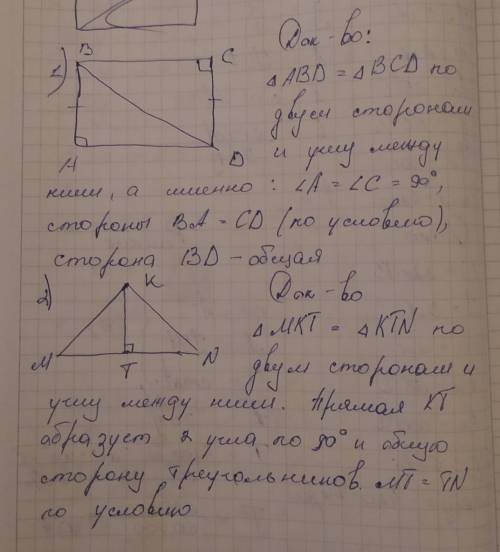 1)
B
C
A
D
Док-во:
△ABD = △BCD по
двум сторонам
и углу между
ними, а именно: ∠A = ∠C = 90°,
стороны BA = CD (по условию),
сторона BD - общая
2)
K
M
T
N
Док-во
△MKT = △KTN по
двум сторонам и
углу между ними. Прямая KT
абразует 2 угла по 90° и общую
сторону треугольников. MT = TN
по условию